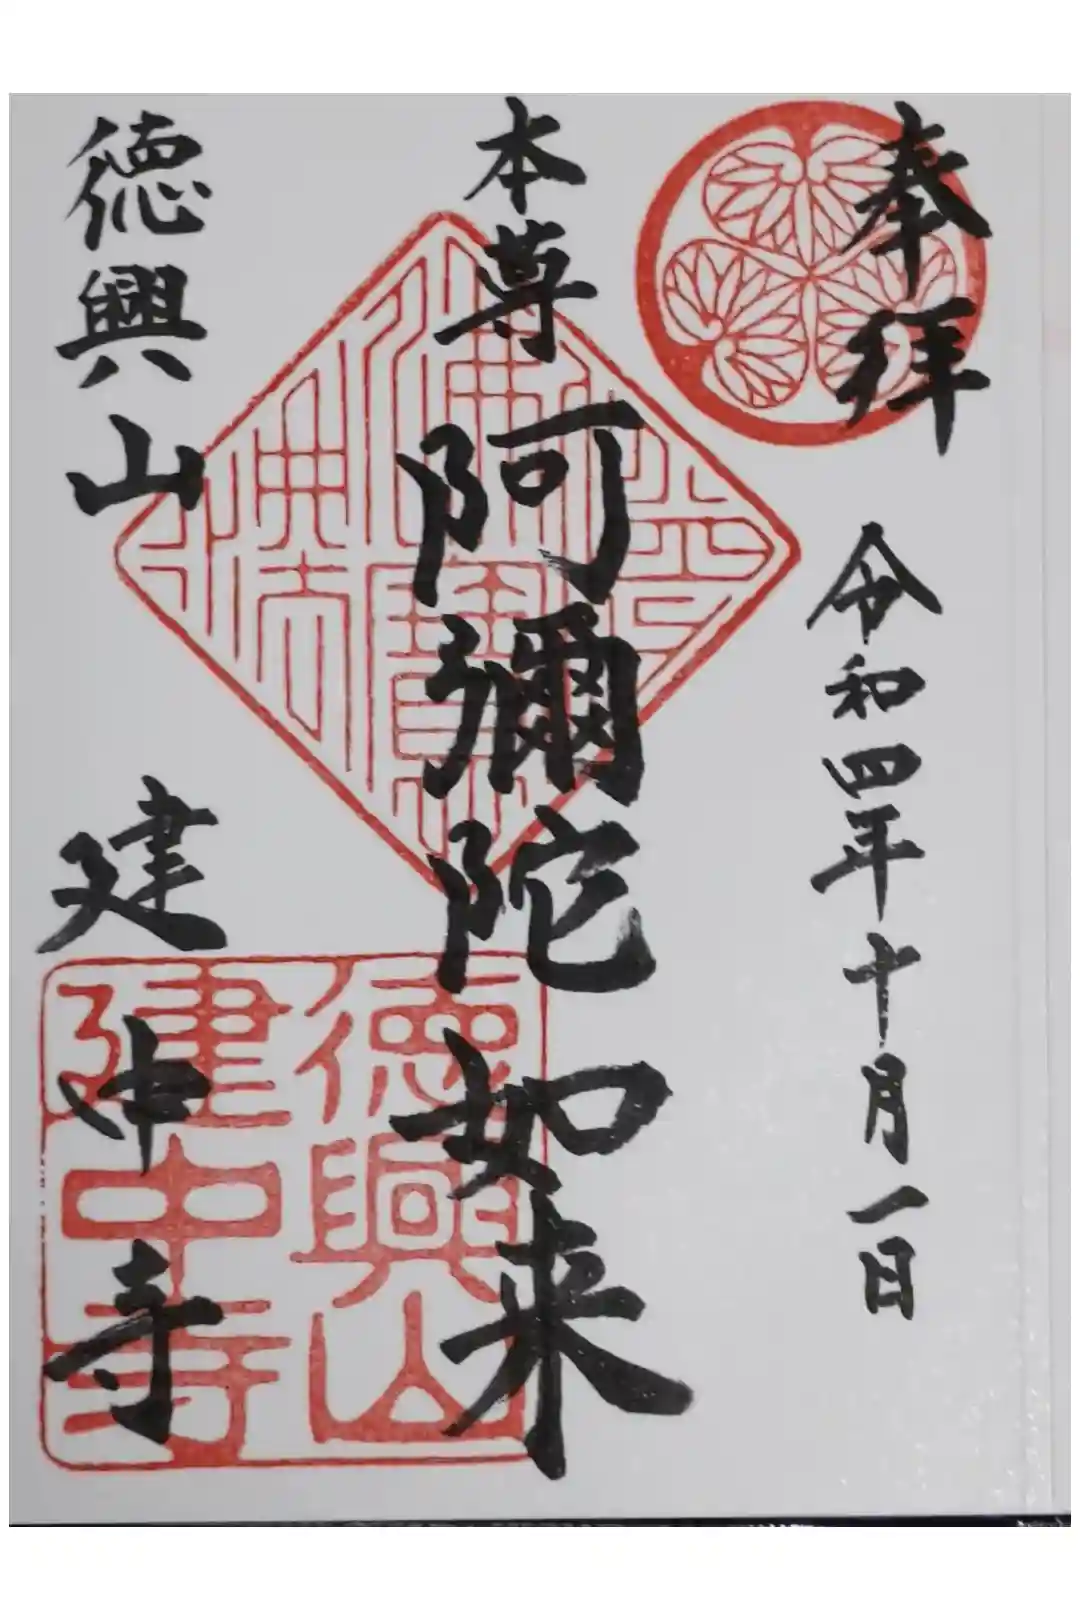 奉拝
令和四年十月一日
本尊
阿彌陀如来
徳興山
建中寺
佛法僧寶
徳興山
建中寺